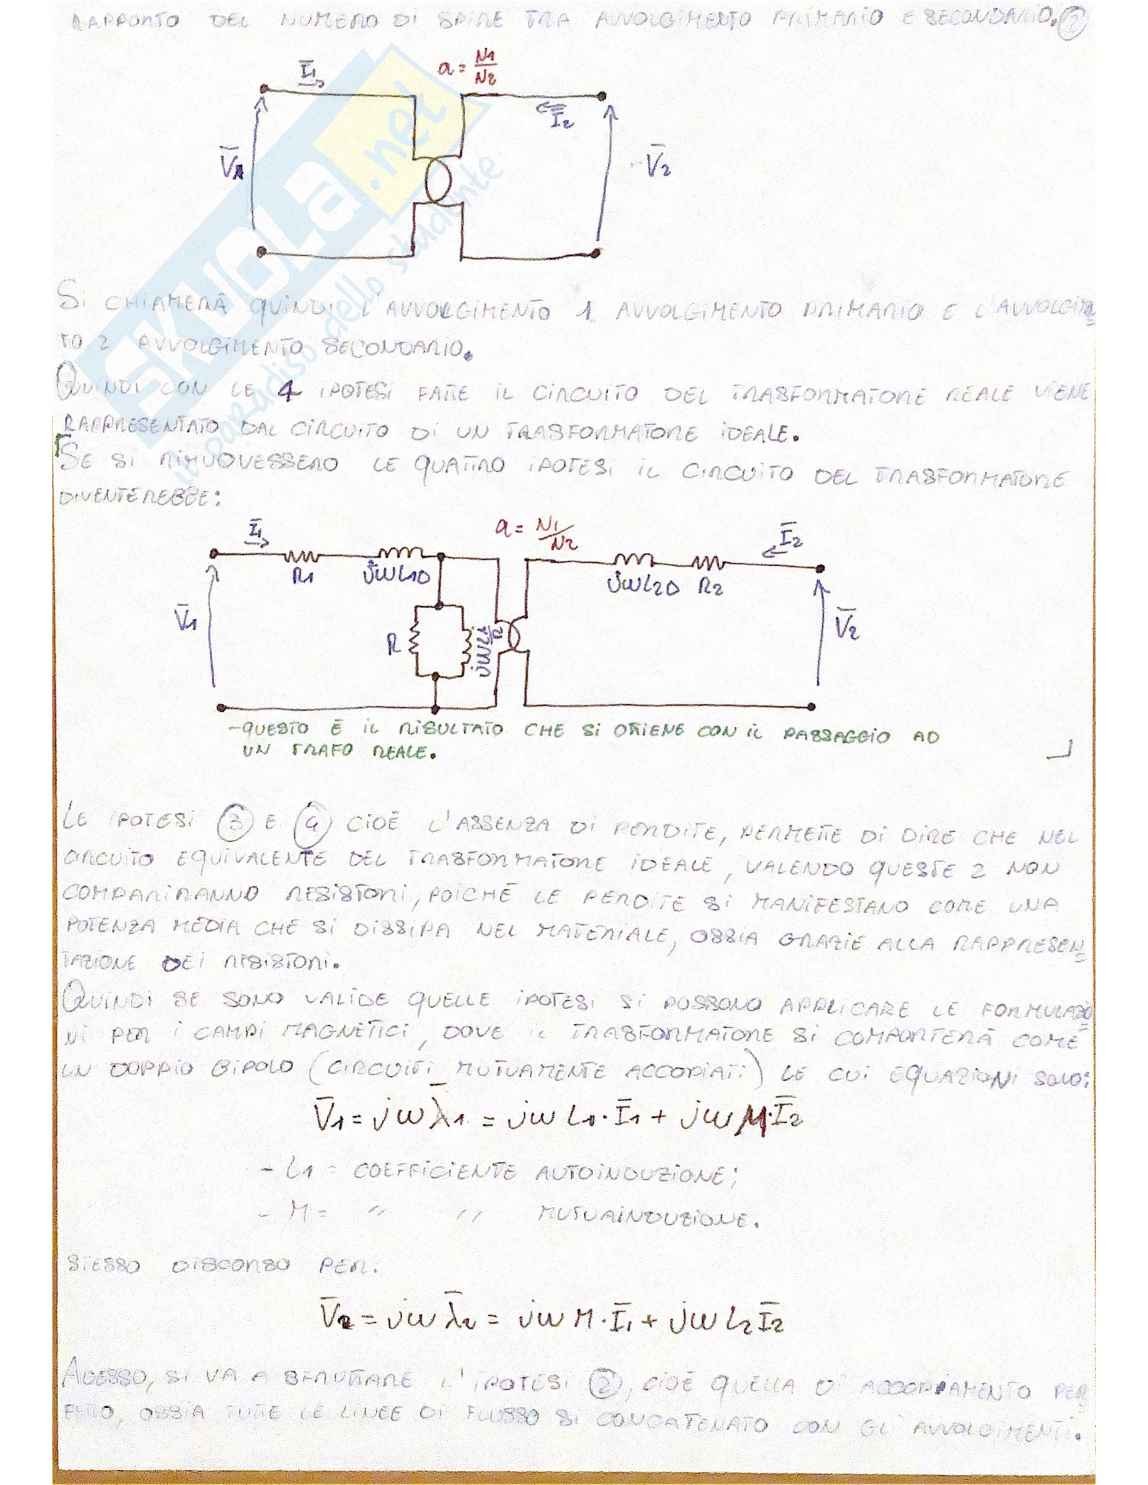 RAPPORTO DEL NUMERO DI SPIRE TRA AVVOLGIMENTO PRIMARIO E SECONDARIO. 2
a = N1/N2
I1
I2
V1
V2
SI CHIAMERÀ QUINDI L'AVVOLGIMENTO 1 AVVOLGIMENTO PRIMARIO E L'AVVOLGIMEN
TO 2 AVVOLGIMENTO SECONDARIO.
QUINDI CON LE 4 IPOTESI FATTE IL CIRCUITO DEL TRASFORMATORE REALE VIENE
RAPPRESENTATO DAL CIRCUITO DI UN TRASFORMATORE IDEALE.
SE SI RIMUOVESSERO LE QUATTRO IPOTESI IL CIRCUITO DEL TRASFORMATORE
DIVENTEREBBE:
I1
a = N1/N2
I2
R1
jωL1D
jωL2D
R2
V1
R
V2
- QUESTO È IL RISULTATO CHE SI OTTIENE CON IL PASSAGGIO AD
UN TRAFO REALE.
LE IPOTESI 3 E 4 CIOÈ L'ASSENZA DI PERDITE, PERMETTE DI DIRE CHE NEL
CIRCUITO EQUIVALENTE DEL TRASFORMATORE IDEALE, VALENDO QUESTE 2 NON
COMPARIRANNO RESISTORI, POICHÉ LE PERDITE SI MANIFESTANO COME UNA
POTENZA MEDIA CHE SI DISSIPA NEL MATERIALE, OSSIA GRAZIE ALLA RAPPRESEN
TAZIONE DEI RESISTORI.
QUINDI SE SONO VALIDE QUELLE IPOTESI SI POSSONO APPLICARE LE FORMULAZIO
NI PER I CAMPI MAGNETICI, DOVE IL TRASFORMATORE SI COMPORTERÀ COME
UN DOPPIO BIPOLO (CIRCUITI MUTUAMENTE ACCOPPIATI) LE CUI EQUAZIONI SONO:
V̄1 = jωλ̄1 = jωL1·Ī1 + jωM·Ī2
- L1 = COEFFICIENTE AUTOINDUZIONE;
- M = " " MUTUAINDUZIONE.
STESSO DISCORSO PER:
V̄2 = jωλ̄2 = jωM·Ī1 + jωL2Ī2
ADESSO, SI VA A SFRUTTARE L'IPOTESI 2, CIOÈ QUELLA DI ACCOPPIAMENTO PER
FETTO, OSSIA TUTTE LE LINEE DI FLUSSO SI CONCATENATO CON GLI AVVOLGIMENTI.
SKUOLA.net
il paradiso dello studente